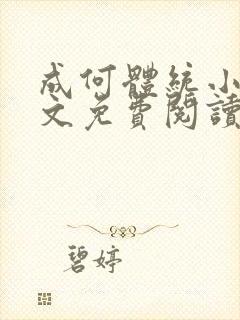 成何體統小
文免費閱讀
碧婷